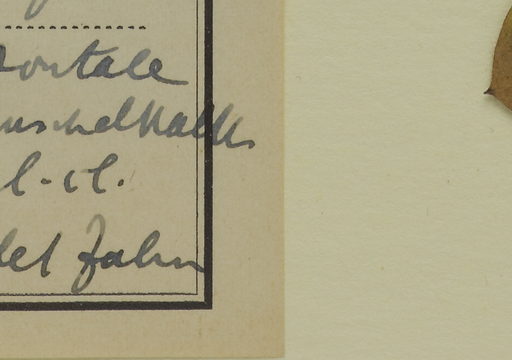 ontale
uschelkalks
l-cl.
det Zahn